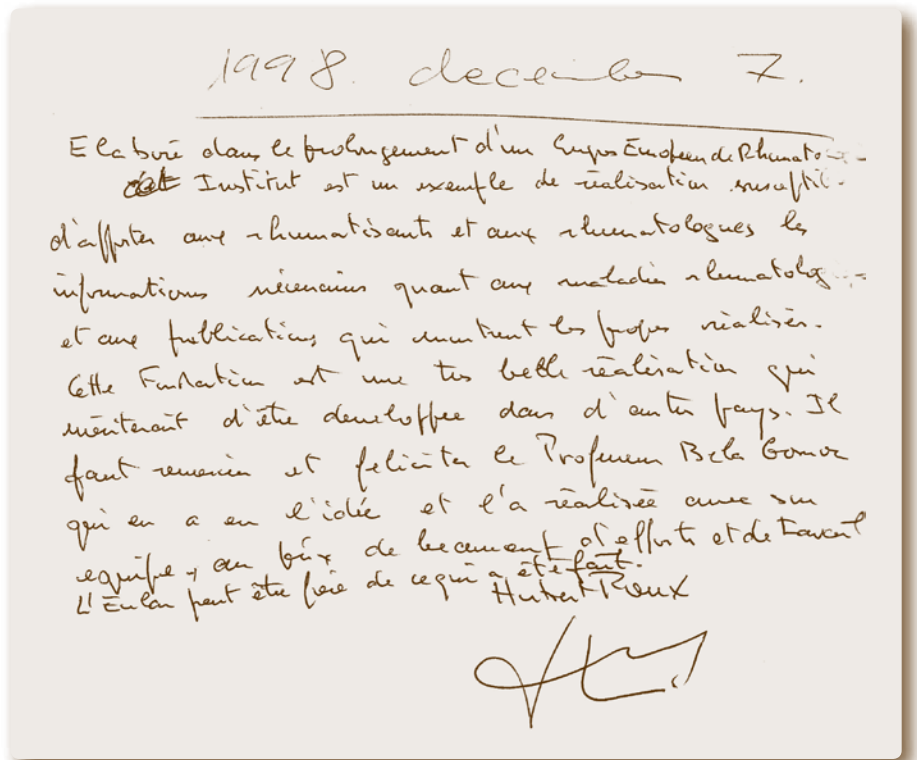 1998. december 7.
Elaboré dans le prolongement d'un Congres Européen de Rhumato
cet Institut est un exemple de réalisation suscepti
d'apporter aux rhumatisants et aux rhumatologues les
informations nécessaires quant aux maladies rhumatolog
et aux publications qui montrent les progres réalisés.
Cette Fondation est une tres belle réalisation qui
mériterait d'être developpée dans d'autres pays. Il
faut remercier et feliciter le Professeur Bela Gomor
qui en a eu l'idée et l'a réalisée avec son
equipe, au prix de beaucoup d'efforts et de travail
L'Eular peut être fière de ce qui a été fait.
Hubert Roux